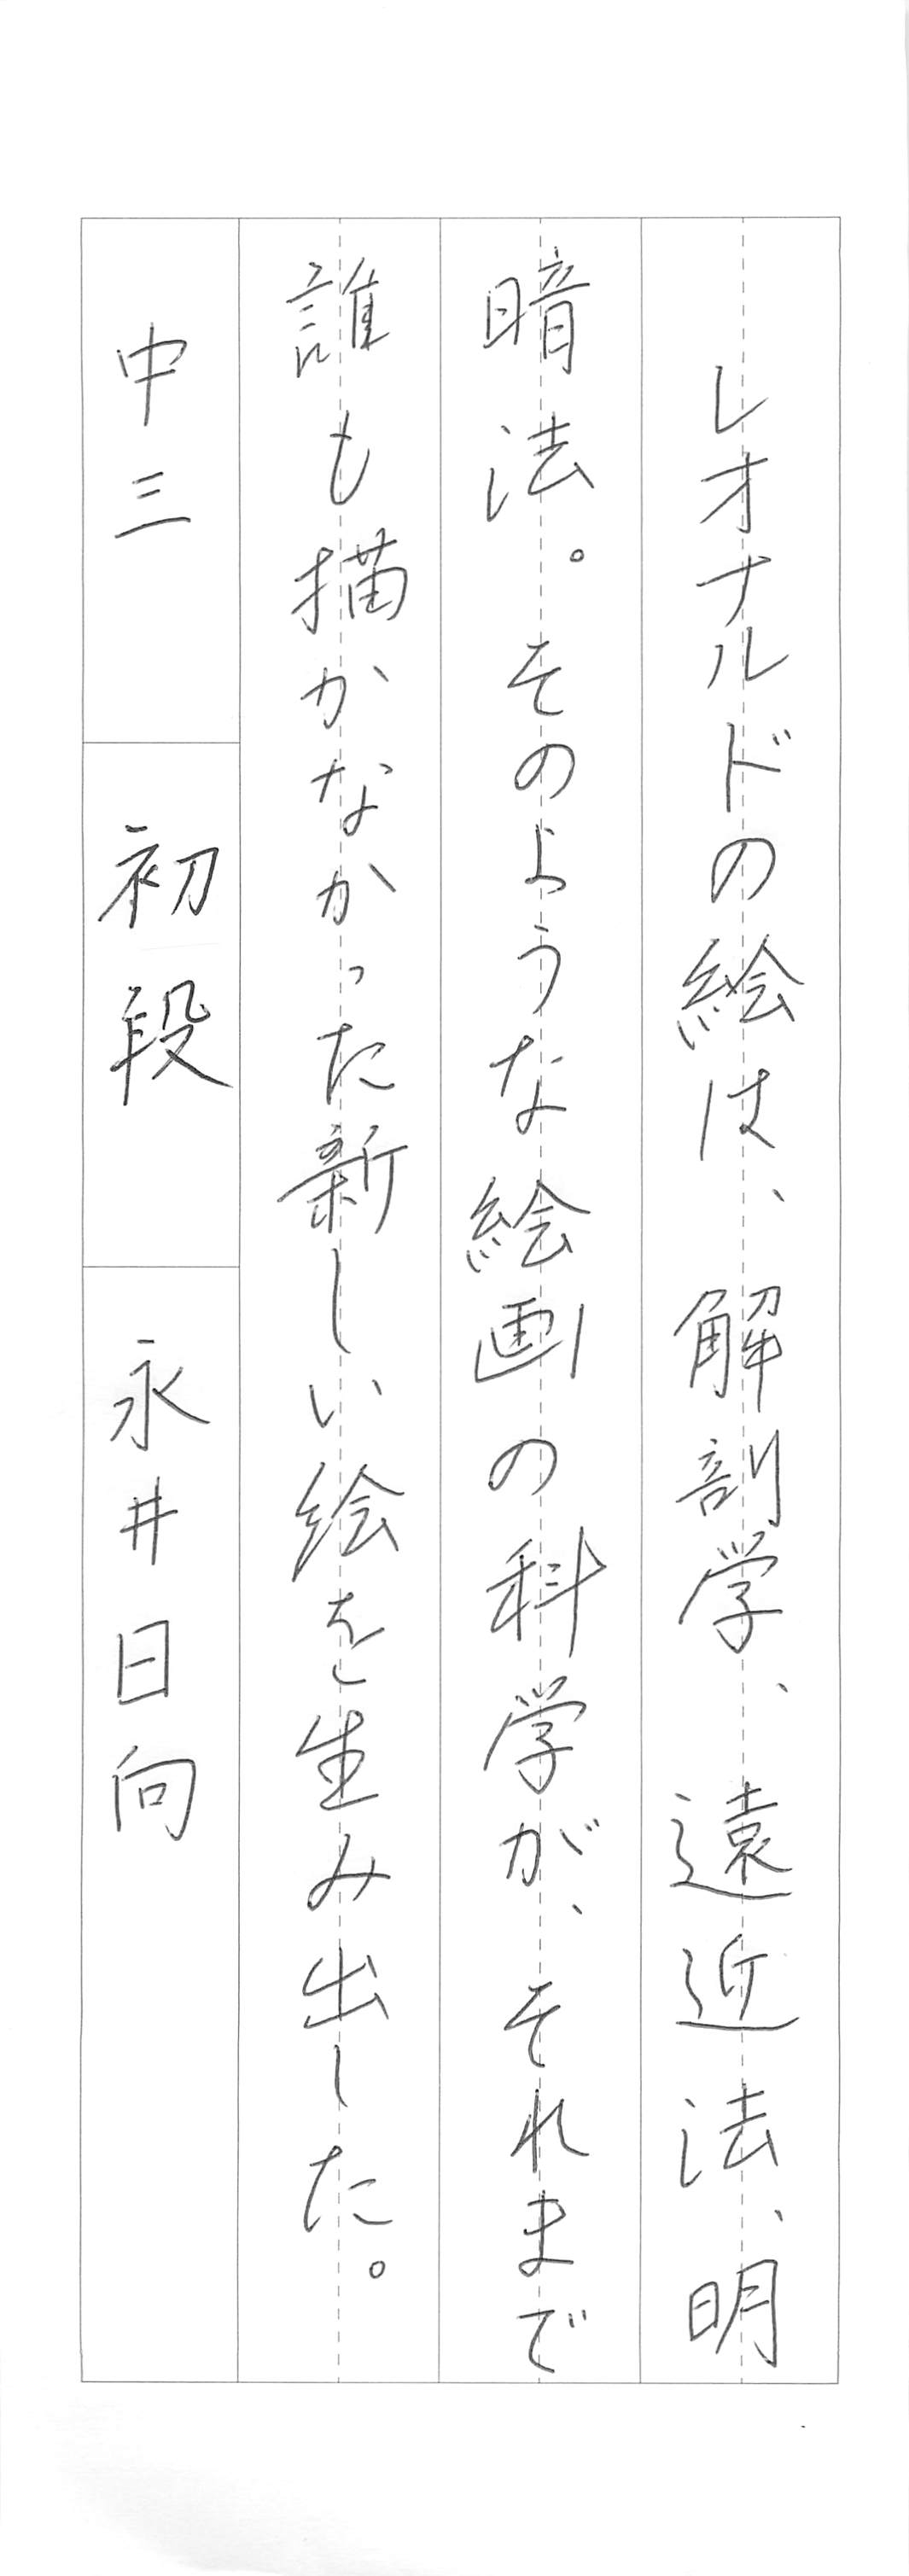 レオナルドの絵は、解剖学、遠近法、明
暗法。そのような絵画の科学が、それまで
誰も描かなかった新しい絵を生み出した。
中三
初段
永井日向